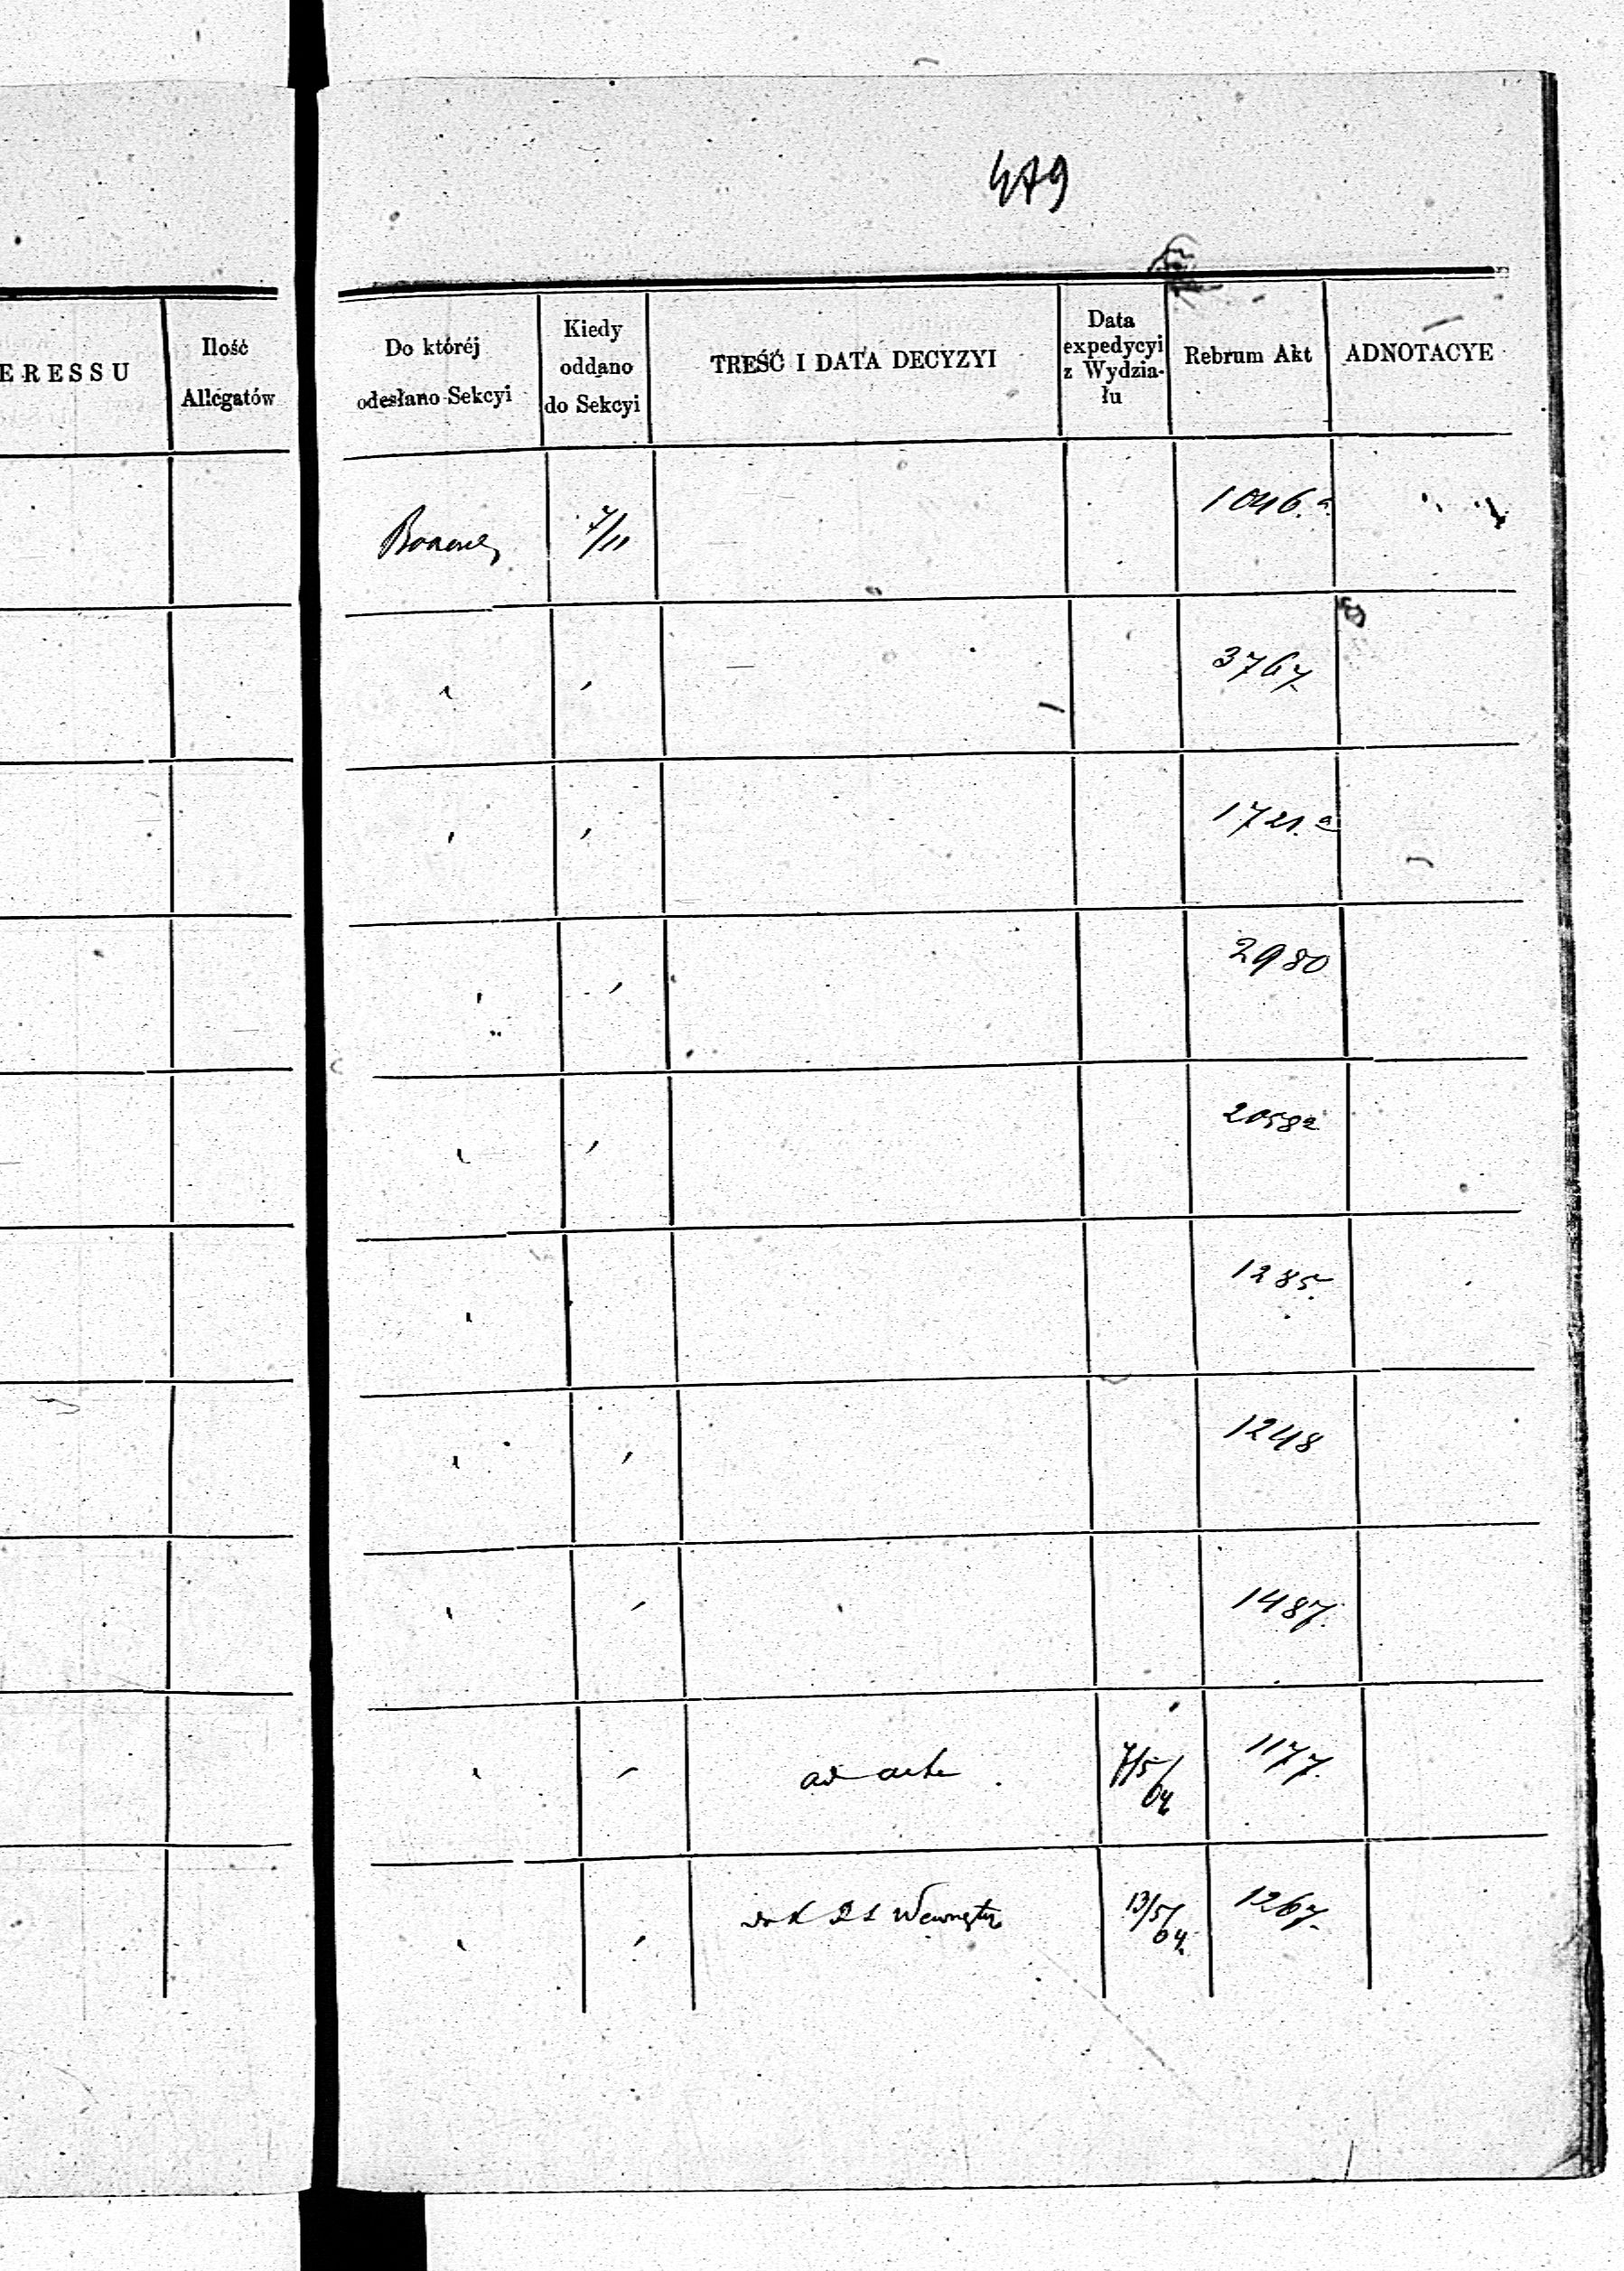 479
ERESSU
Ilość
Allegatów
Do któréj
odesłano Sekcyi
Kiedy
oddano
do Sekcyi
TREŚĆ I DATA DECYZYI
Data
expedycyi
z Wydzia-
łu
Rebrum Akt
ADNOTACYE
7/11
1046.a
3767
1721.a
2980
2058a
1285.
1248
1487.
ad acta
7/5/04
1177.
Wewnętrz
13/5/04
1267